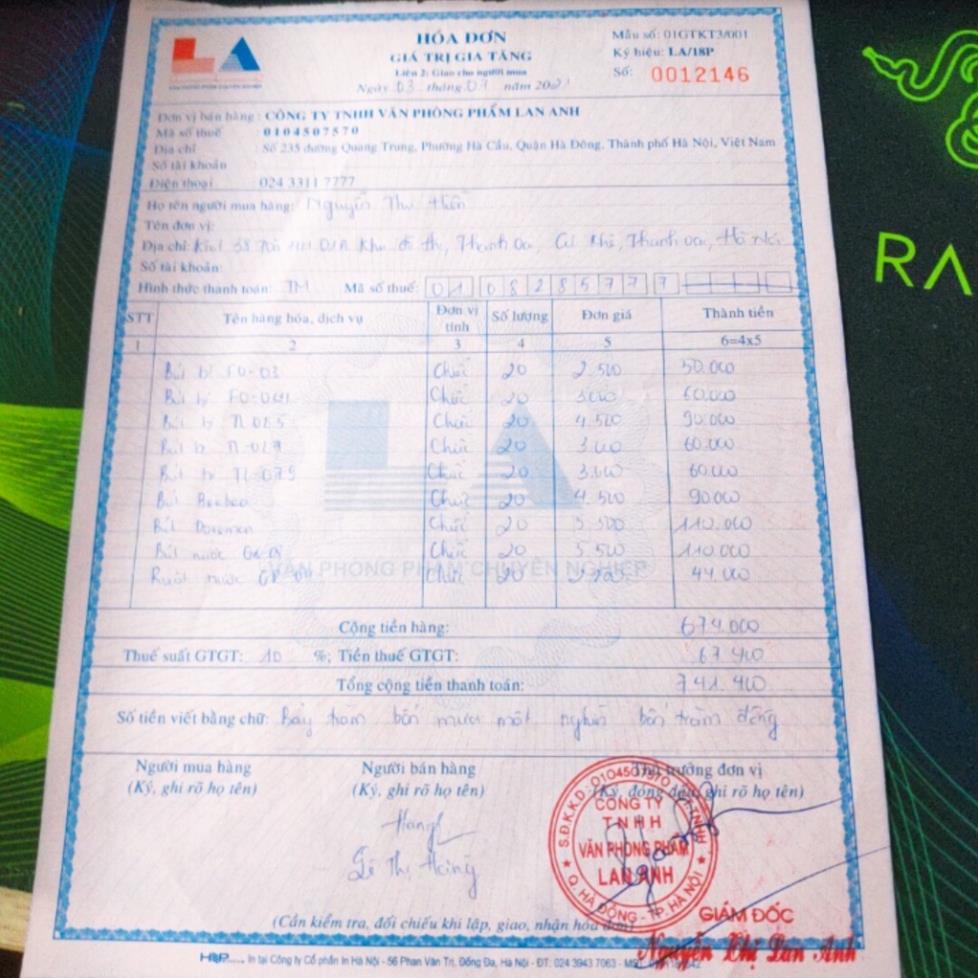 LA
HÓA ĐƠN
GIÁ TRỊ GIA TĂNG
Liên 2: Giao cho người mua
Ngày 03 tháng 07 năm
Mẫu số: 01GTKT3/001
Ký hiệu: LA/18P
Số: 0012146
Đơn vị bán hàng : CÔNG TY TNHH VĂN PHÒNG PHẨM LAN ANH
Mã số thuế : 0104507570
Địa chỉ : Số 235 đường Quang Trung, Phường Hà Cầu, Quận Hà Đông, Thành phố Hà Nội, Việt Nam
Số tài khoản :
Điện thoại : 024 3311 7777
Họ tên người mua hàng: Nguyễn Thu Hiền
Tên đơn vị:
Địa chỉ: Khu đô thị, Thanh Oai, Cự Khê, Thanh Oai, Hà Nội
Số tài khoản:
Hình thức thanh toán: TM Mã số thuế: 01 08285777
STT Tên hàng hóa, dịch vụ Đơn vị tính Số lượng Đơn giá Thành tiền
1 2 3 4 5 6=4x5
Bút bi FO-03 Chiếc 20 2.500 50.000
Bút bi Chiếc 20 3.000 60.000
Bút bi Chiếc 20 4.500 90.000
Bút bi Chiếc 20 3.000 60.000
Bút bi TL-079 Chiếc 20 3.000 60.000
Bút Chiếc 20 4.500 90.000
Bút Doremon Chiếc 20 5.500 110.000
Bút nước Chiếc 20 5.500 110.000
Ruột nước Chiếc 20 2.200 44.000
VĂN PHÒNG PHẨM CHUYÊN NGHIỆP
Cộng tiền hàng: 674.000
Thuế suất GTGT: 10 %; Tiền thuế GTGT: 67.400
Tổng cộng tiền thanh toán: 741.400
Số tiền viết bằng chữ: Bảy trăm bốn mươi mốt nghìn bốn trăm đồng
Người mua hàng Người bán hàng Thủ trưởng đơn vị
(Ký, ghi rõ họ tên) (Ký, ghi rõ họ tên) (Ký, đóng dấu, ghi rõ họ tên)
Lê Thị Hằng
CÔNG TY
TNHH
VĂN PHÒNG PHẨM
LAN ANH
Q. HÀ ĐÔNG - TP. HÀ NỘI
(Cần kiểm tra, đối chiếu khi lập, giao, nhận hóa đơn)
GIÁM ĐỐC
Nguyễn Thị Lan Anh
In tại Công ty Cổ phần In Hà Nội - 56 Phạm Văn Trị, Đống Đa, Hà Nội - ĐT: 024 3943 7063
RA